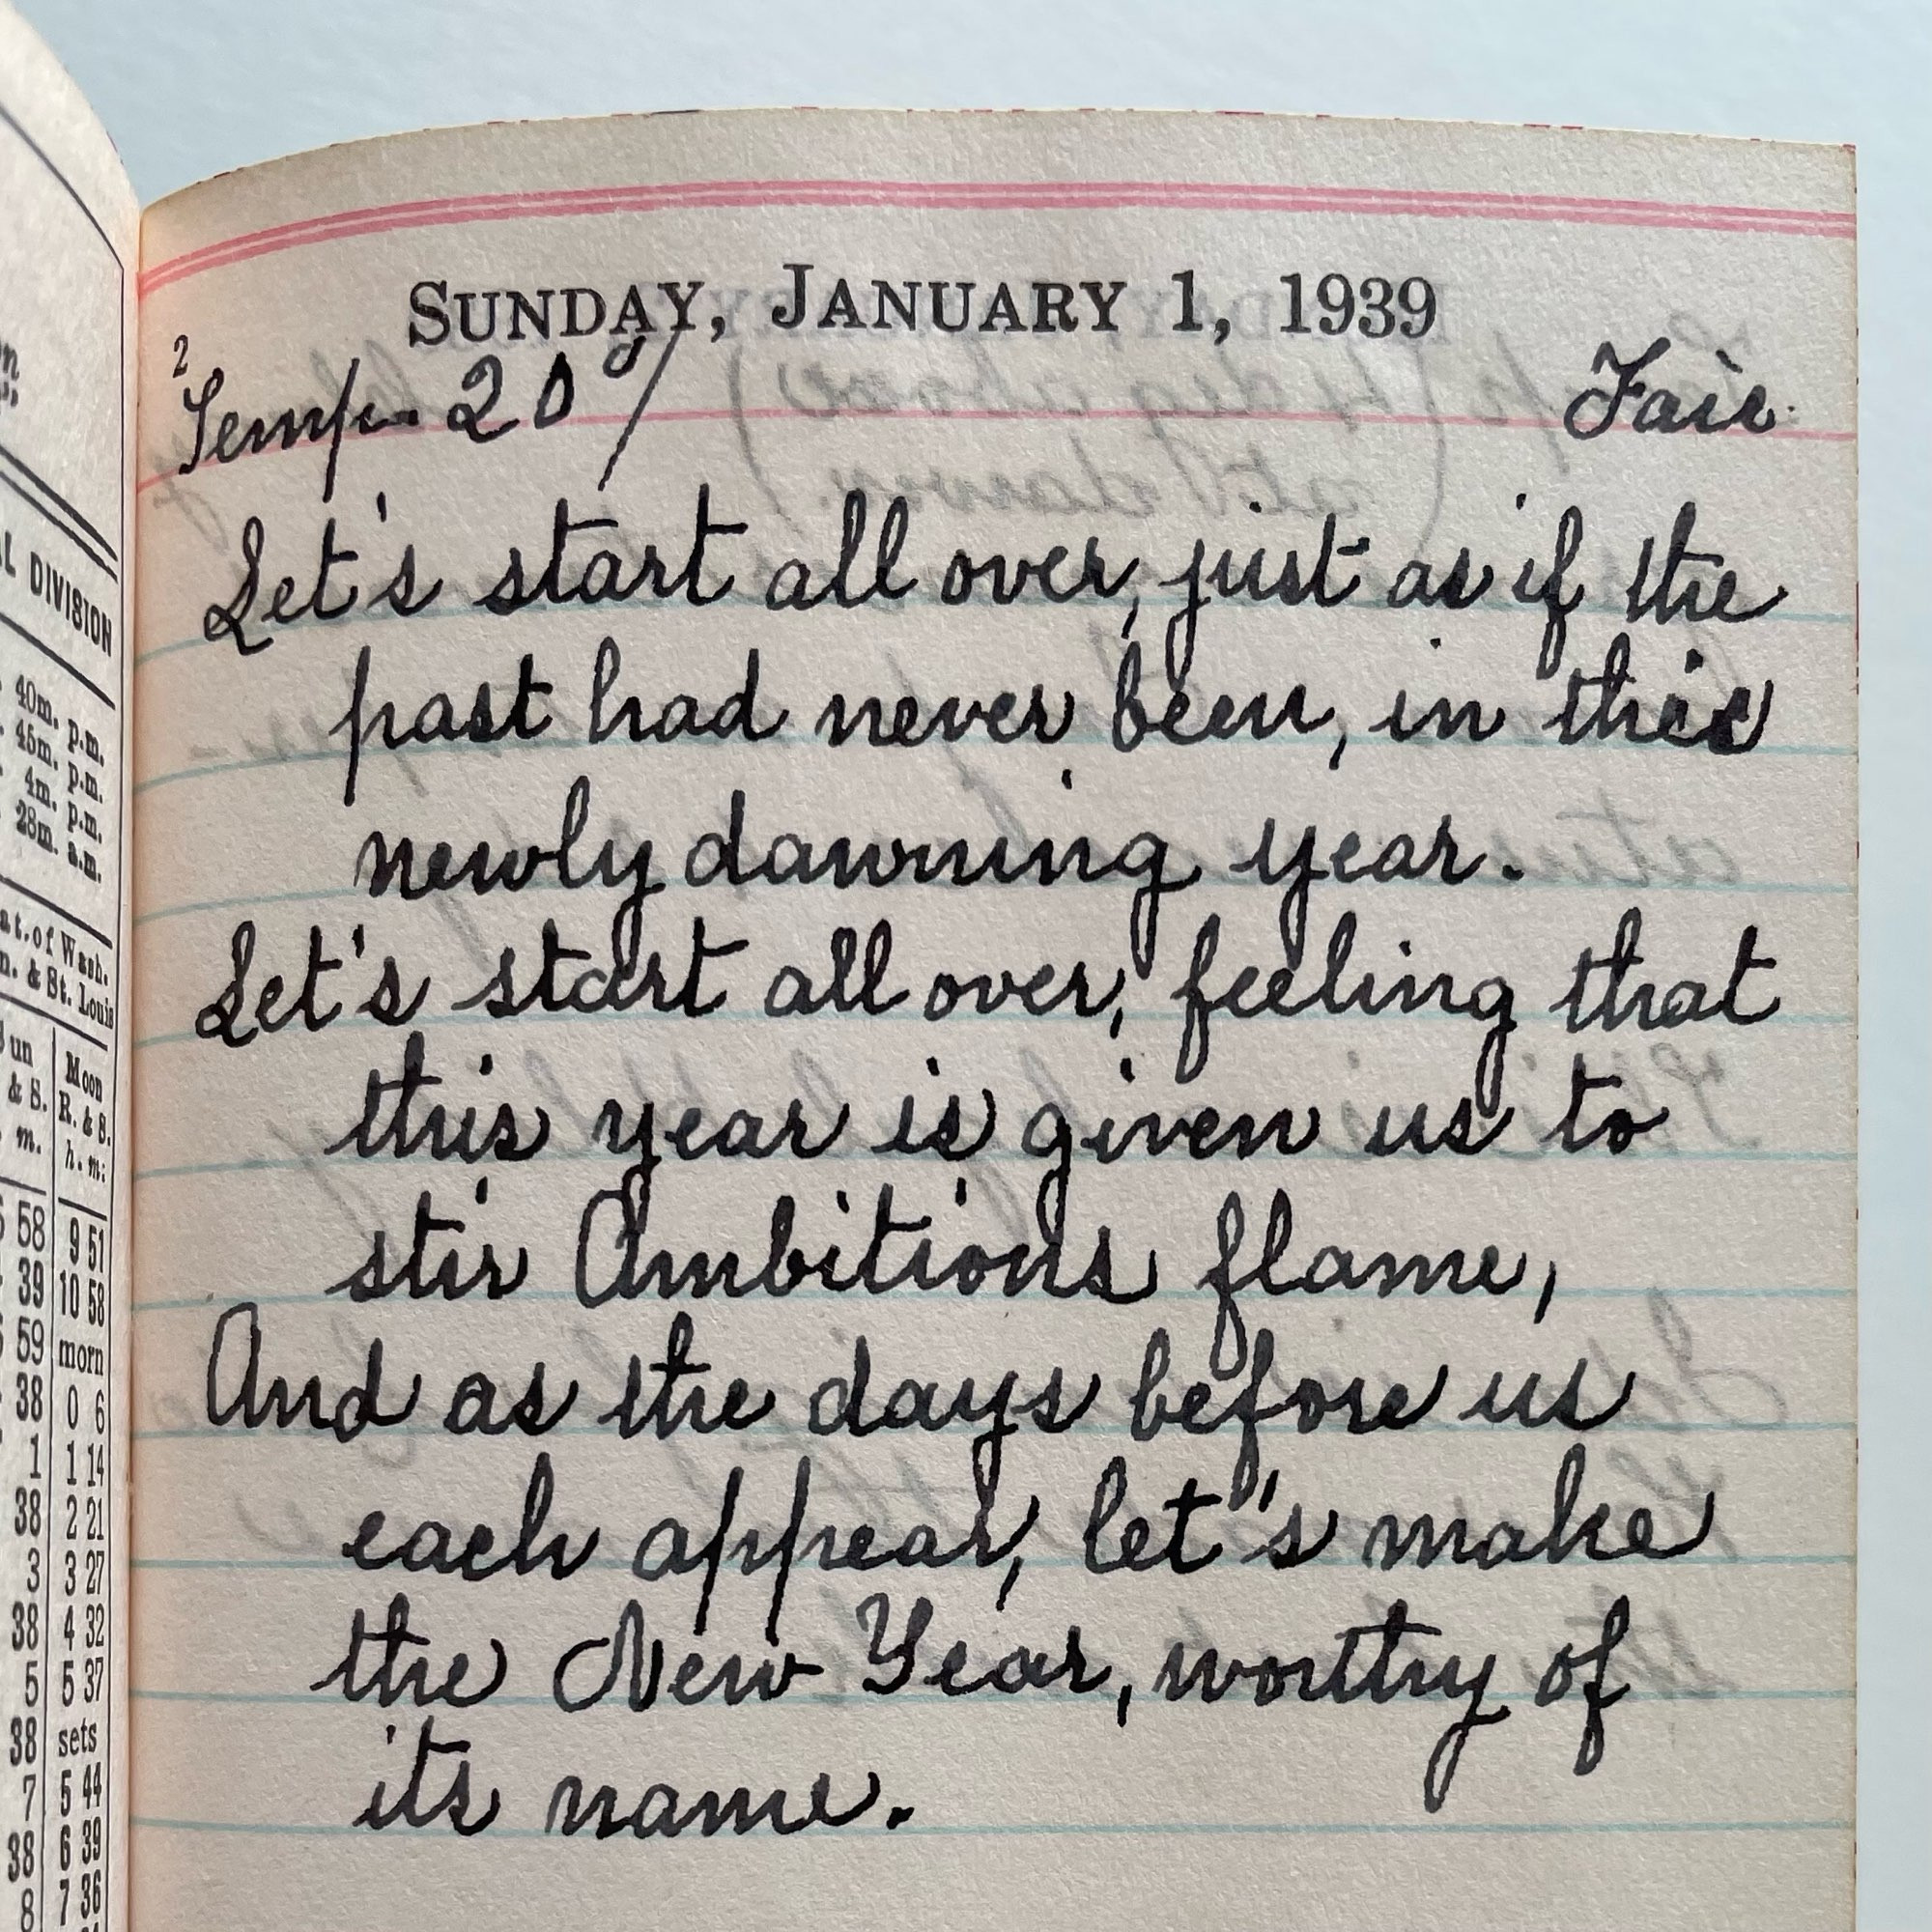 on
L DIVISION
40m. p.m.
45m. p.m.
4m. p.m.
28m. a.m.
at. of Wash.
n. & St. Louis
Sun Moon
& S. R. & S.
m. h. m.
58 9 51
39 10 58
59 morn
38 0 6
1 1 14
38 2 21
3 3 27
38 4 32
5 5 37
38 sets
7 5 44
38 6 39
8 7 36
SUNDAY, JANUARY 1, 1939
2
Temp. 20°/ Fair
Let's start all over, just as if the
past had never been, in this
newly dawning year.
Let's start all over, feeling that
this year is given us to
stir Ambitions flame,
And as the days before us
each appear, let's make
the New Year, worthy of
its name.